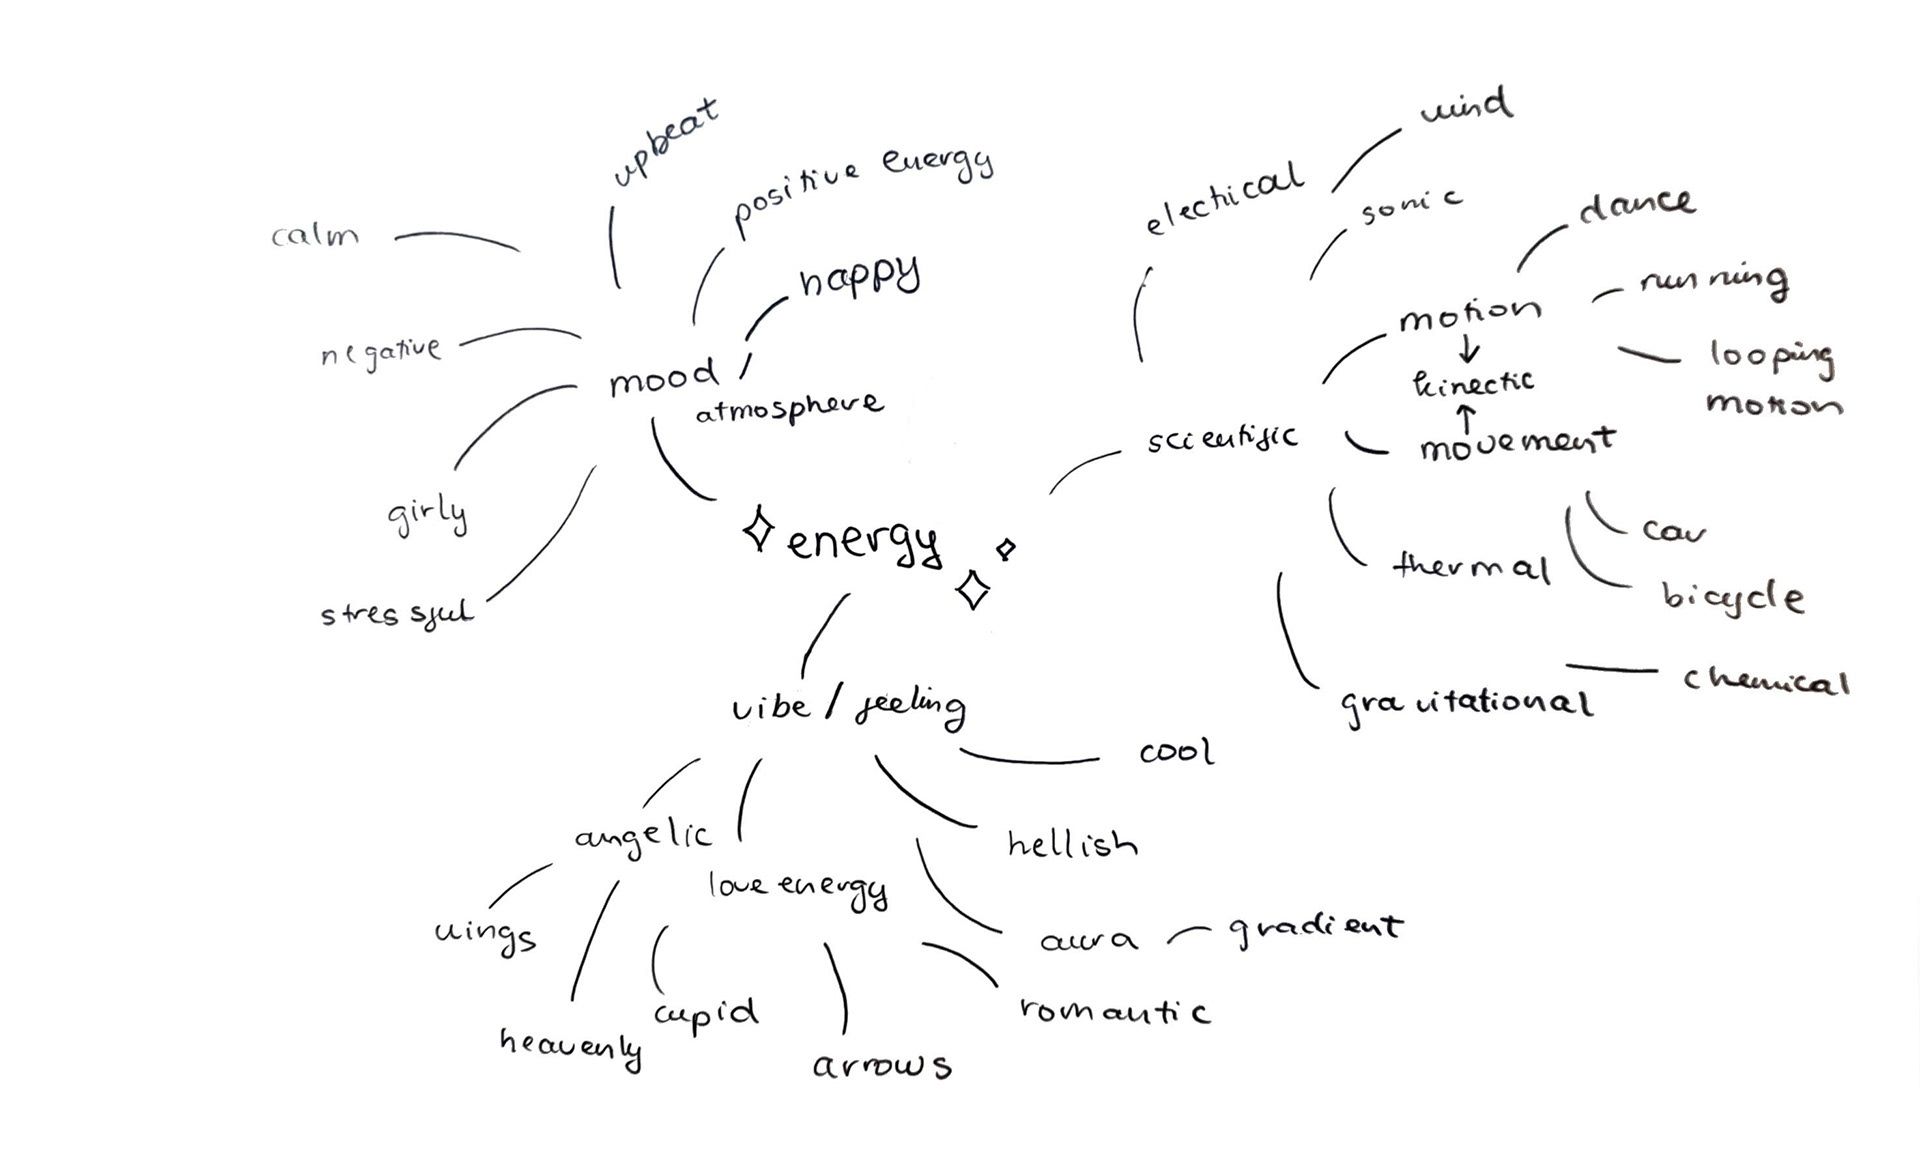 upbeat
positive energy
calm
happy
negative
mood /
atmosphere
girly
stressful
energy
wind
electrical
sonic
dance
motion
running
kinectic
looping
motion
scientific
movement
car
thermal
bicycle
gravitational
chemical
vibe / feeling
cool
angelic
hellish
love energy
wings
aura
gradient
cupid
romantic
heavenly
arrows